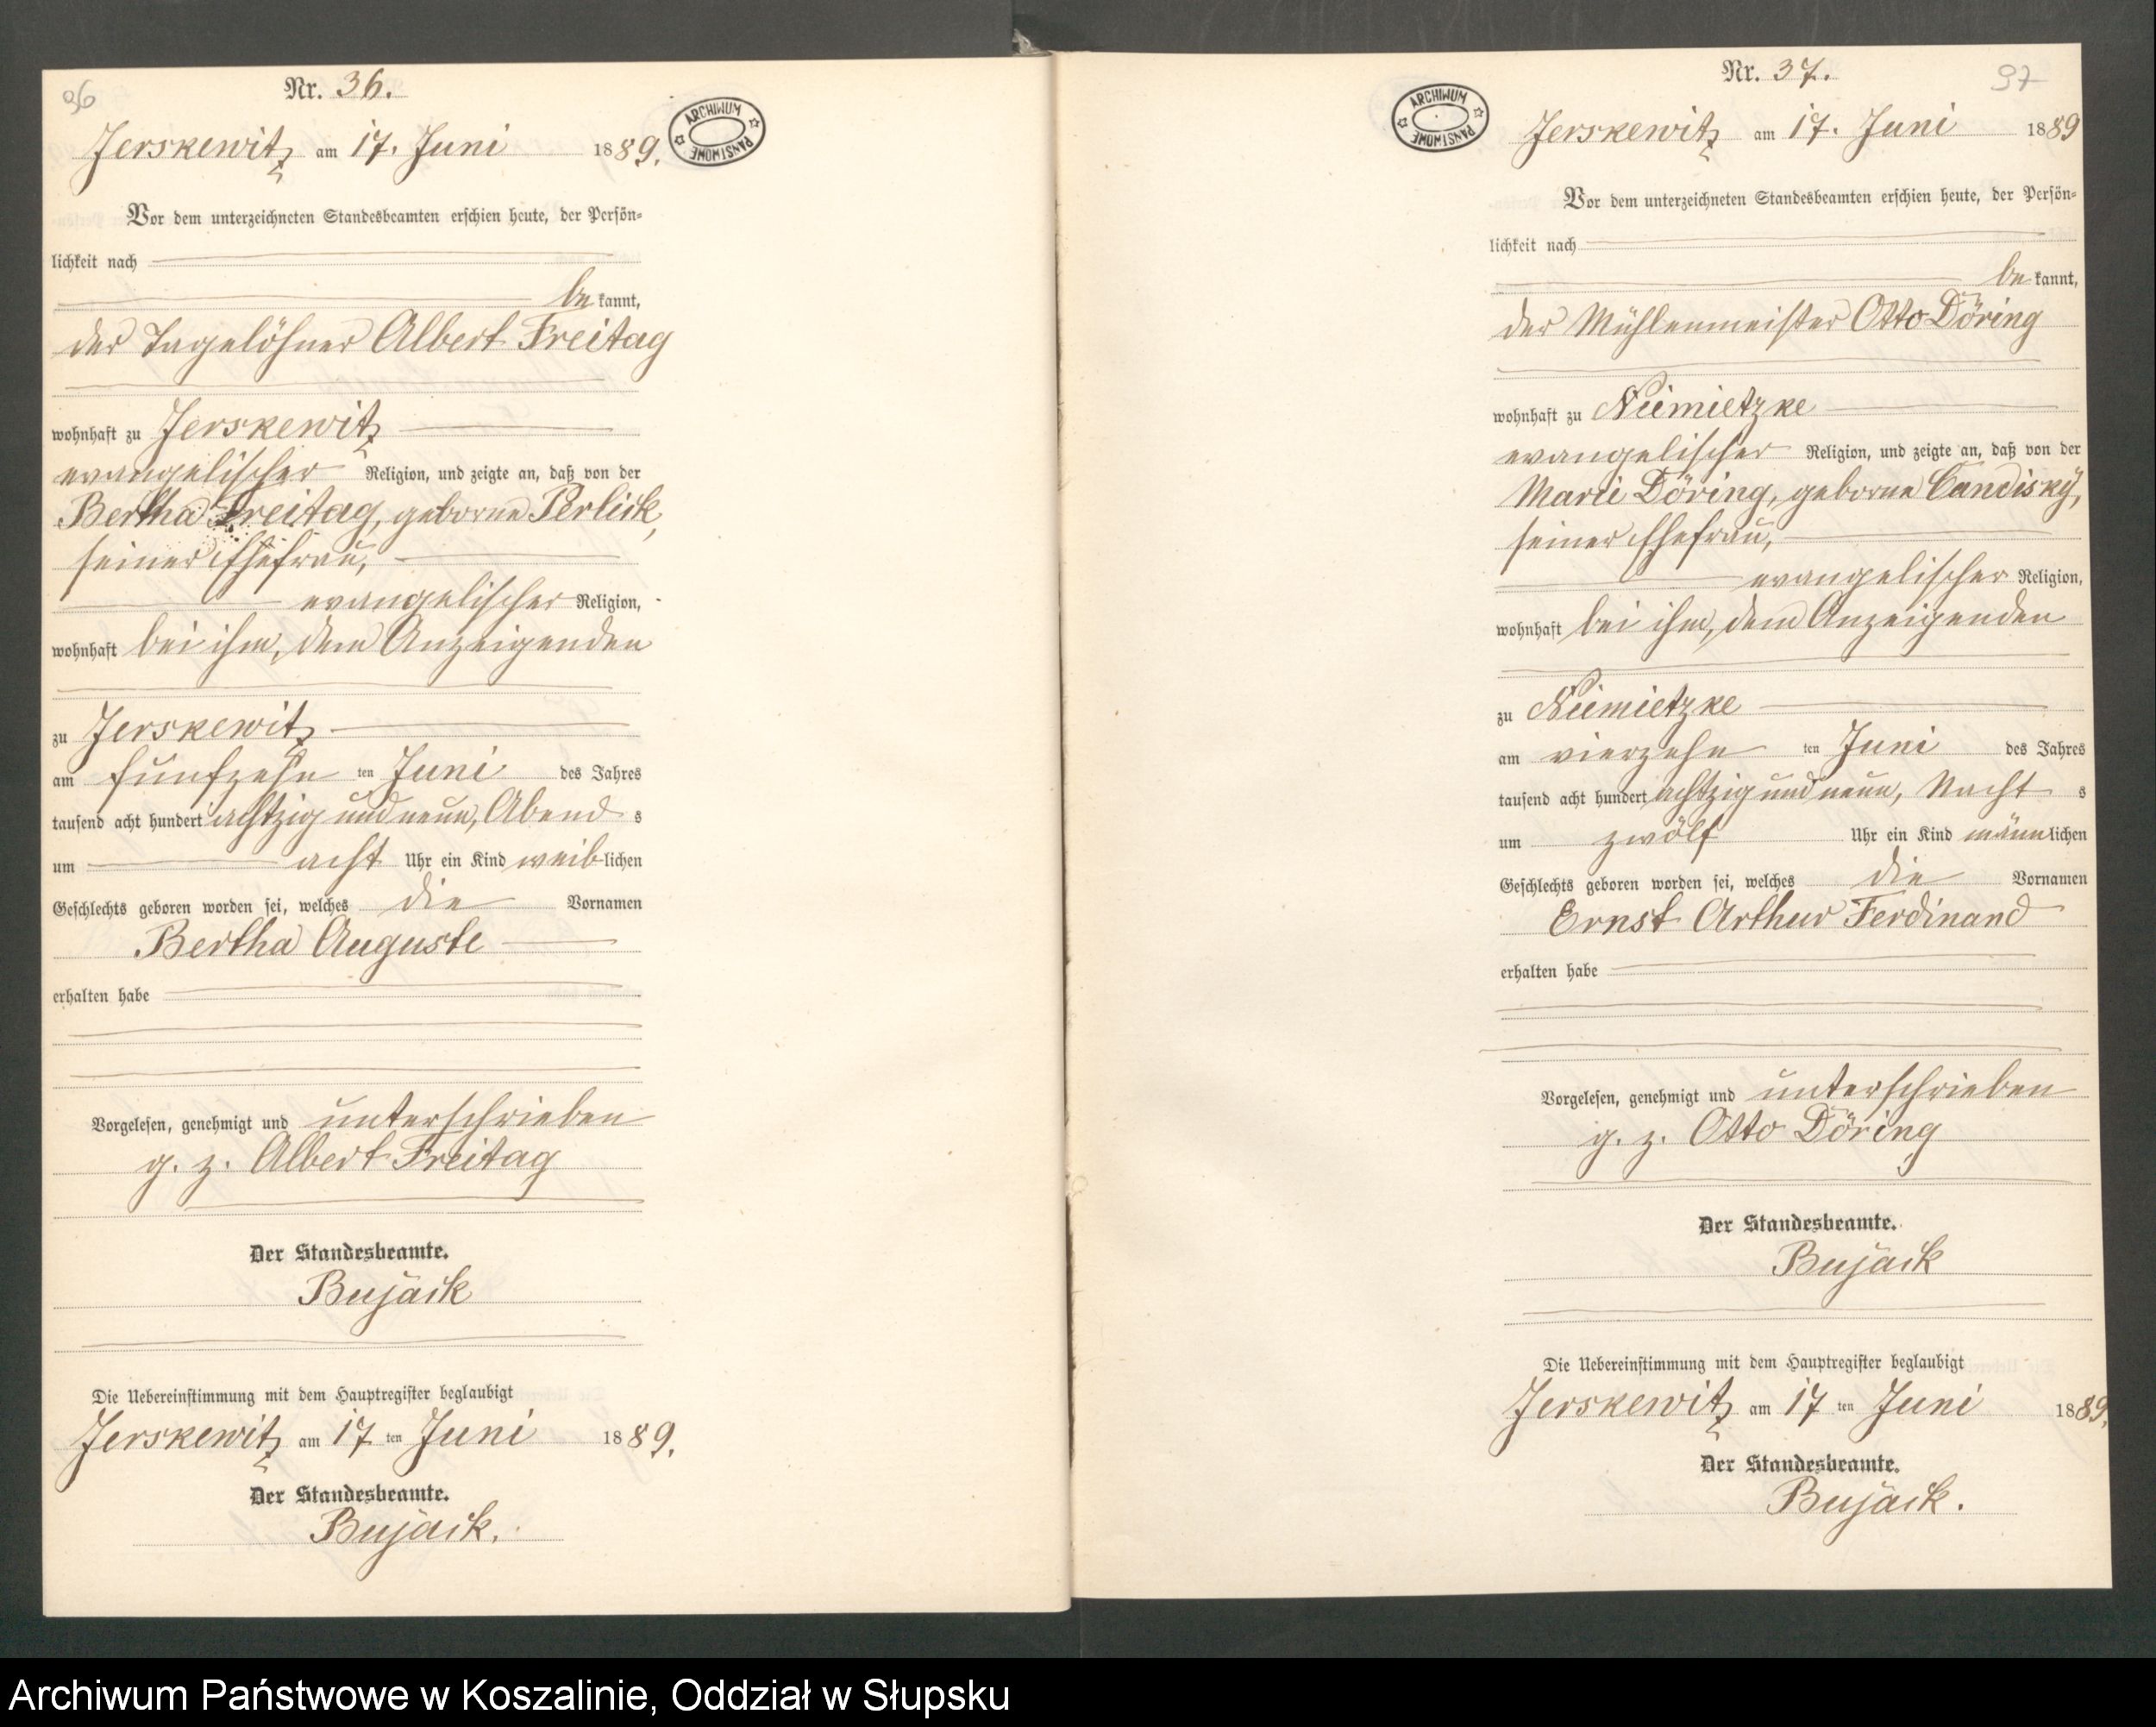 36
Nr. 36.
ARCHIWUM PAŃSTWOWE
Jerskewitz am 17. Juni 1889.
Vor dem unterzeichneten Standesbeamten erschien heute, der Persön=
lichkeit nach
be kannt,
der Tagelöhner Albert Freitag
wohnhaft zu Jerskewitz
evangelischer Religion, und zeigte an, daß von der
Bertha Freitag, geborne Perlick,
seiner Ehefrau,
evangelischer Religion,
wohnhaft bei ihm, dem Anzeigenden
zu Jerskewitz
am fünfzehn ten Juni des Jahres
tausend acht hundert achtzig und neun, Abend s
um acht Uhr ein Kind weiblichen
Geschlechts geboren worden sei, welches die Vornamen
Bertha Auguste
erhalten habe
Vorgelesen, genehmigt und unterschrieben
g. z. Albert Freitag
Der Standesbeamte.
Bujack
Die Uebereinstimmung mit dem Hauptregister beglaubigt
Jerskewitz am 17 ten Juni 1889.
Der Standesbeamte.
Bujack.
Nr. 37.
37
ARCHIWUM PAŃSTWOWE
Jerskewitz am 17. Juni 1889
Vor dem unterzeichneten Standesbeamten erschien heute, der Persön=
lichkeit nach
be kannt,
der Mühlenmeister Otto Döring
wohnhaft zu Niemietzke
evangelischer Religion, und zeigte an, daß von der
Marie Döring, geborne Candisky,
seiner Ehefrau,
evangelischer Religion,
wohnhaft bei ihm, dem Anzeigenden
zu Niemietzke
am vierzehn ten Juni des Jahres
tausend acht hundert achtzig und neun, Nacht s
um zwölf Uhr ein Kind männlichen
Geschlechts geboren worden sei, welches die Vornamen
Ernst Arthur Ferdinand
erhalten habe
Vorgelesen, genehmigt und unterschrieben
g. z. Otto Döring
Der Standesbeamte.
Bujack
Die Uebereinstimmung mit dem Hauptregister beglaubigt
Jerskewitz am 17 ten Juni 1889.
Der Standesbeamte.
Bujack.
Archiwum Państwowe w Koszalinie, Oddział w Słupsku